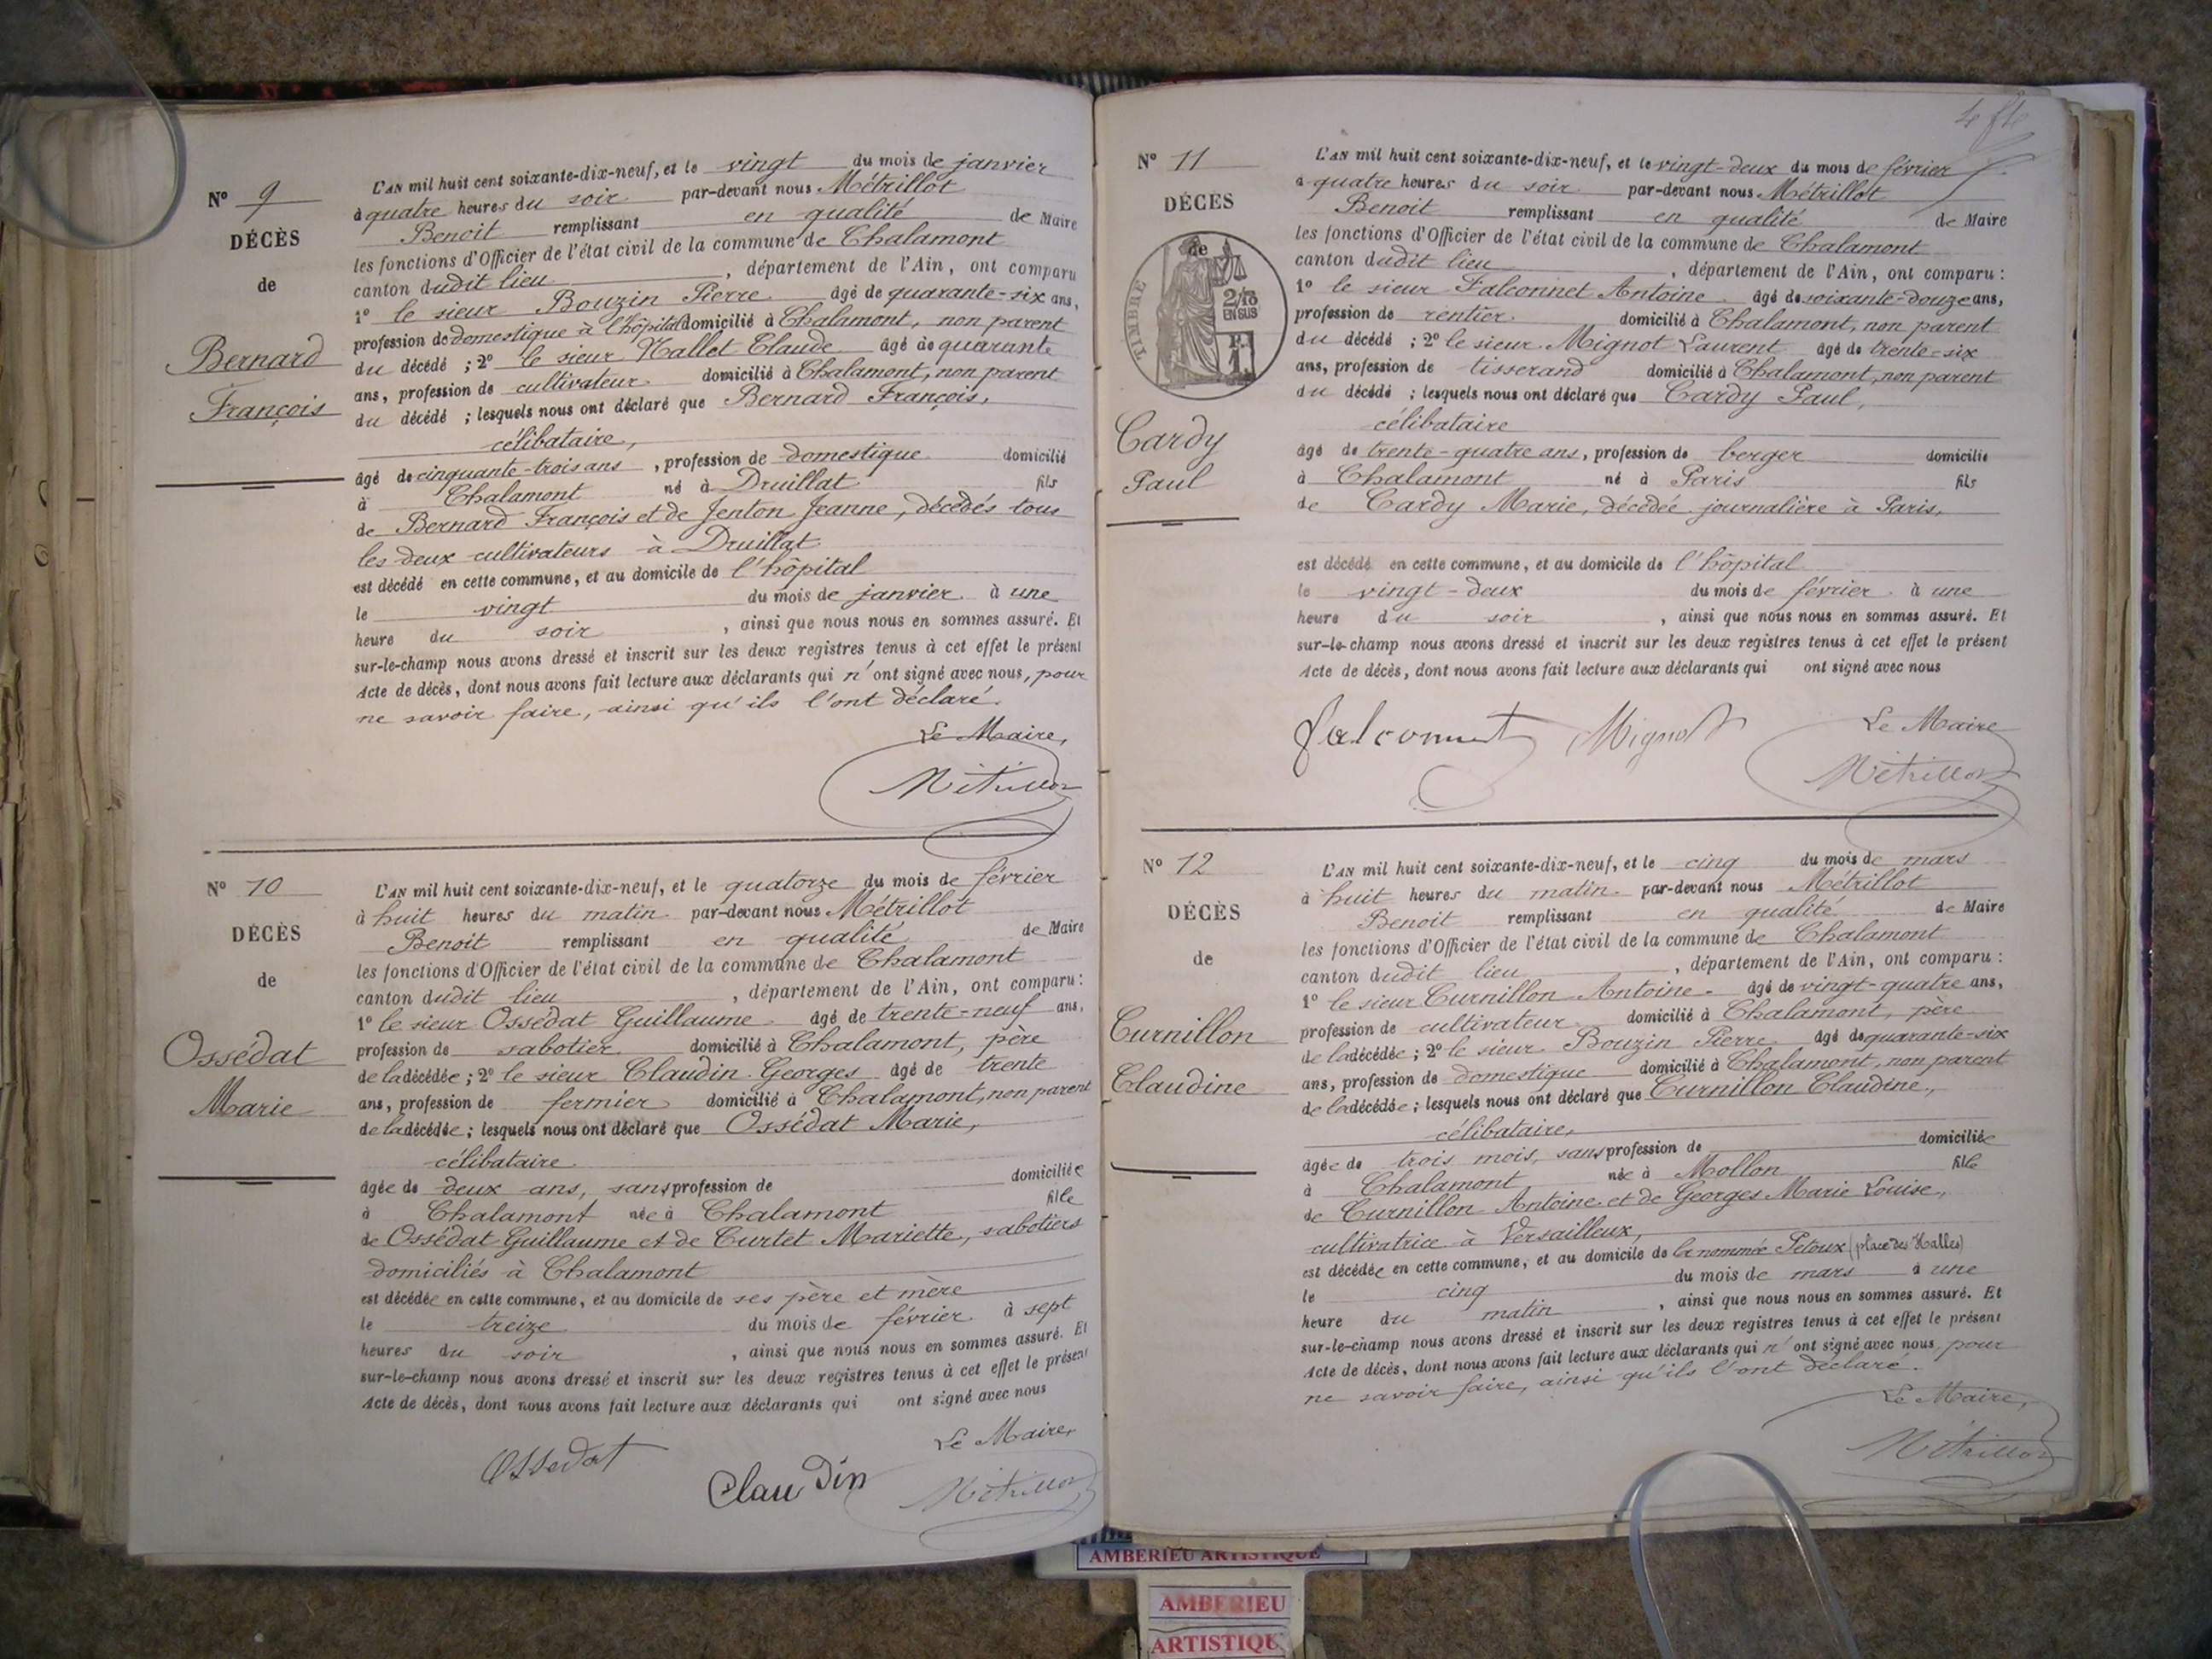 N° 9
DÉCÈS
de
Bernard
François
L'AN mil huit cent soixante-dix-neuf, et le vingt du mois de janvier
à quatre heures du soir par-devant nous Métrillot
Benoit remplissant en qualité de Maire
les fonctions d'Officier de l'état civil de la commune de Chalamont
canton dudit lieu, département de l'Ain, ont comparu
1° le sieur Bouzin Pierre âgé de quarante-six ans,
profession de domestique à l'hôpital domicilié à Chalamont, non parent
du décédé ; 2° le sieur Nallet Claude âgé de quarante
ans, profession de cultivateur domicilié à Chalamont, non parent
du décédé ; lesquels nous ont déclaré que Bernard François,
célibataire,
âgé de cinquante-trois ans, profession de domestique domicilié
à Chalamont né à Druillat fils
de Bernard François et de Jenton Jeanne, décédés tous
les deux cultivateurs à Druillat
est décédé en cette commune, et au domicile de l'hôpital
le vingt du mois de janvier à une
heure du soir, ainsi que nous nous en sommes assuré. Et
sur-le-champ nous avons dressé et inscrit sur les deux registres tenus à cet effet le présent
Acte de décès, dont nous avons fait lecture aux déclarants qui n'ont signé avec nous, pour
ne savoir faire, ainsi qu'ils l'ont déclaré.
Le Maire,
Métrillot
N° 10
DÉCÈS
de
Ossédat
Marie
L'AN mil huit cent soixante-dix-neuf, et le quatorze du mois de février
à huit heures du matin par-devant nous Métrillot
Benoit remplissant en qualité de Maire
les fonctions d'Officier de l'état civil de la commune de Chalamont
canton dudit lieu, département de l'Ain, ont comparu :
1° le sieur Ossédat Guillaume âgé de trente-neuf ans,
profession de sabotier domicilié à Chalamont, père
de la décédée ; 2° le sieur Claudin Georges âgé de trente
ans, profession de fermier domicilié à Chalamont, non parent
de la décédée ; lesquels nous ont déclaré que Ossédat Marie,
célibataire
âgée de deux ans, sans profession de domiciliée
à Chalamont née à Chalamont fille
de Ossédat Guillaume et de Curtet Mariette, sabotiers
domiciliés à Chalamont
est décédée en cette commune, et au domicile de ses père et mère
le treize du mois de février à sept
heures du soir, ainsi que nous nous en sommes assuré. Et
sur-le-champ nous avons dressé et inscrit sur les deux registres tenus à cet effet le présent
Acte de décès, dont nous avons fait lecture aux déclarants qui ont signé avec nous
Le Maire,
Ossedat Claudin Métrillot
N° 11
DÉCÈS
de
TIMBRE
2/10
EN SUS
1
Cardy
Paul
L'AN mil huit cent soixante-dix-neuf, et le vingt-deux du mois de février
à quatre heures du soir par-devant nous Métrillot
Benoit remplissant en qualité de Maire
les fonctions d'Officier de l'état civil de la commune de Chalamont
canton dudit lieu, département de l'Ain, ont comparu :
1° le sieur Falconnet Antoine âgé de soixante-douze ans,
profession de rentier domicilié à Chalamont, non parent
du décédé ; 2° le sieur Mignot Laurent âgé de trente-six
ans, profession de tisserand domicilié à Chalamont, non parent
du décédé ; lesquels nous ont déclaré que Cardy Paul,
célibataire
âgé de trente-quatre ans, profession de berger domicilié
à Chalamont né à Paris fils
de Cardy Marie, décédée journalière à Paris,
est décédé en cette commune, et au domicile de l'hôpital
le vingt-deux du mois de février à une
heure du soir, ainsi que nous nous en sommes assuré. Et
sur-le-champ nous avons dressé et inscrit sur les deux registres tenus à cet effet le présent
Acte de décès, dont nous avons fait lecture aux déclarants qui ont signé avec nous
Le Maire
falconnet Mignot Métrillot
N° 12
DÉCÈS
de
Curnillon
Claudine
L'AN mil huit cent soixante-dix-neuf, et le cinq du mois de mars
à huit heures du matin par-devant nous Métrillot
Benoit remplissant en qualité de Maire
les fonctions d'Officier de l'état civil de la commune de Chalamont
canton dudit lieu, département de l'Ain, ont comparu :
1° le sieur Curnillon Antoine âgé de vingt-quatre ans,
profession de cultivateur domicilié à Chalamont, père
de la décédée ; 2° le sieur Bouzin Pierre âgé de quarante-six
ans, profession de domestique domicilié à Chalamont, non parent
de la décédée ; lesquels nous ont déclaré que Curnillon Claudine,
célibataire,
âgée de trois mois, sans profession de domiciliée
à Chalamont née à Mollon fille
de Curnillon Antoine et de Georges Marie Louise,
cultivatrice à Versailleux,
est décédée en cette commune, et au domicile de la nommée Petoux (place des Halles)
le cinq du mois de mars à une
heure du matin, ainsi que nous nous en sommes assuré. Et
sur-le-champ nous avons dressé et inscrit sur les deux registres tenus à cet effet le présent
Acte de décès, dont nous avons fait lecture aux déclarants qui n'ont signé avec nous, pour
ne savoir faire, ainsi qu'ils l'ont déclaré.
Le Maire,
Métrillot
AMBERIEU ARTISTIQUE
AMBERIEU
ARTISTIQUE